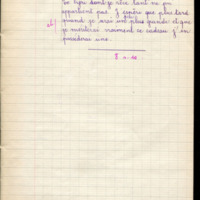 Le type dont je rêve tant ne m'
appartient pas. J'espère que plus tard
quand je serai plus grande et que
je mériterai vraiment ce cadeau j'en
posséderai une.